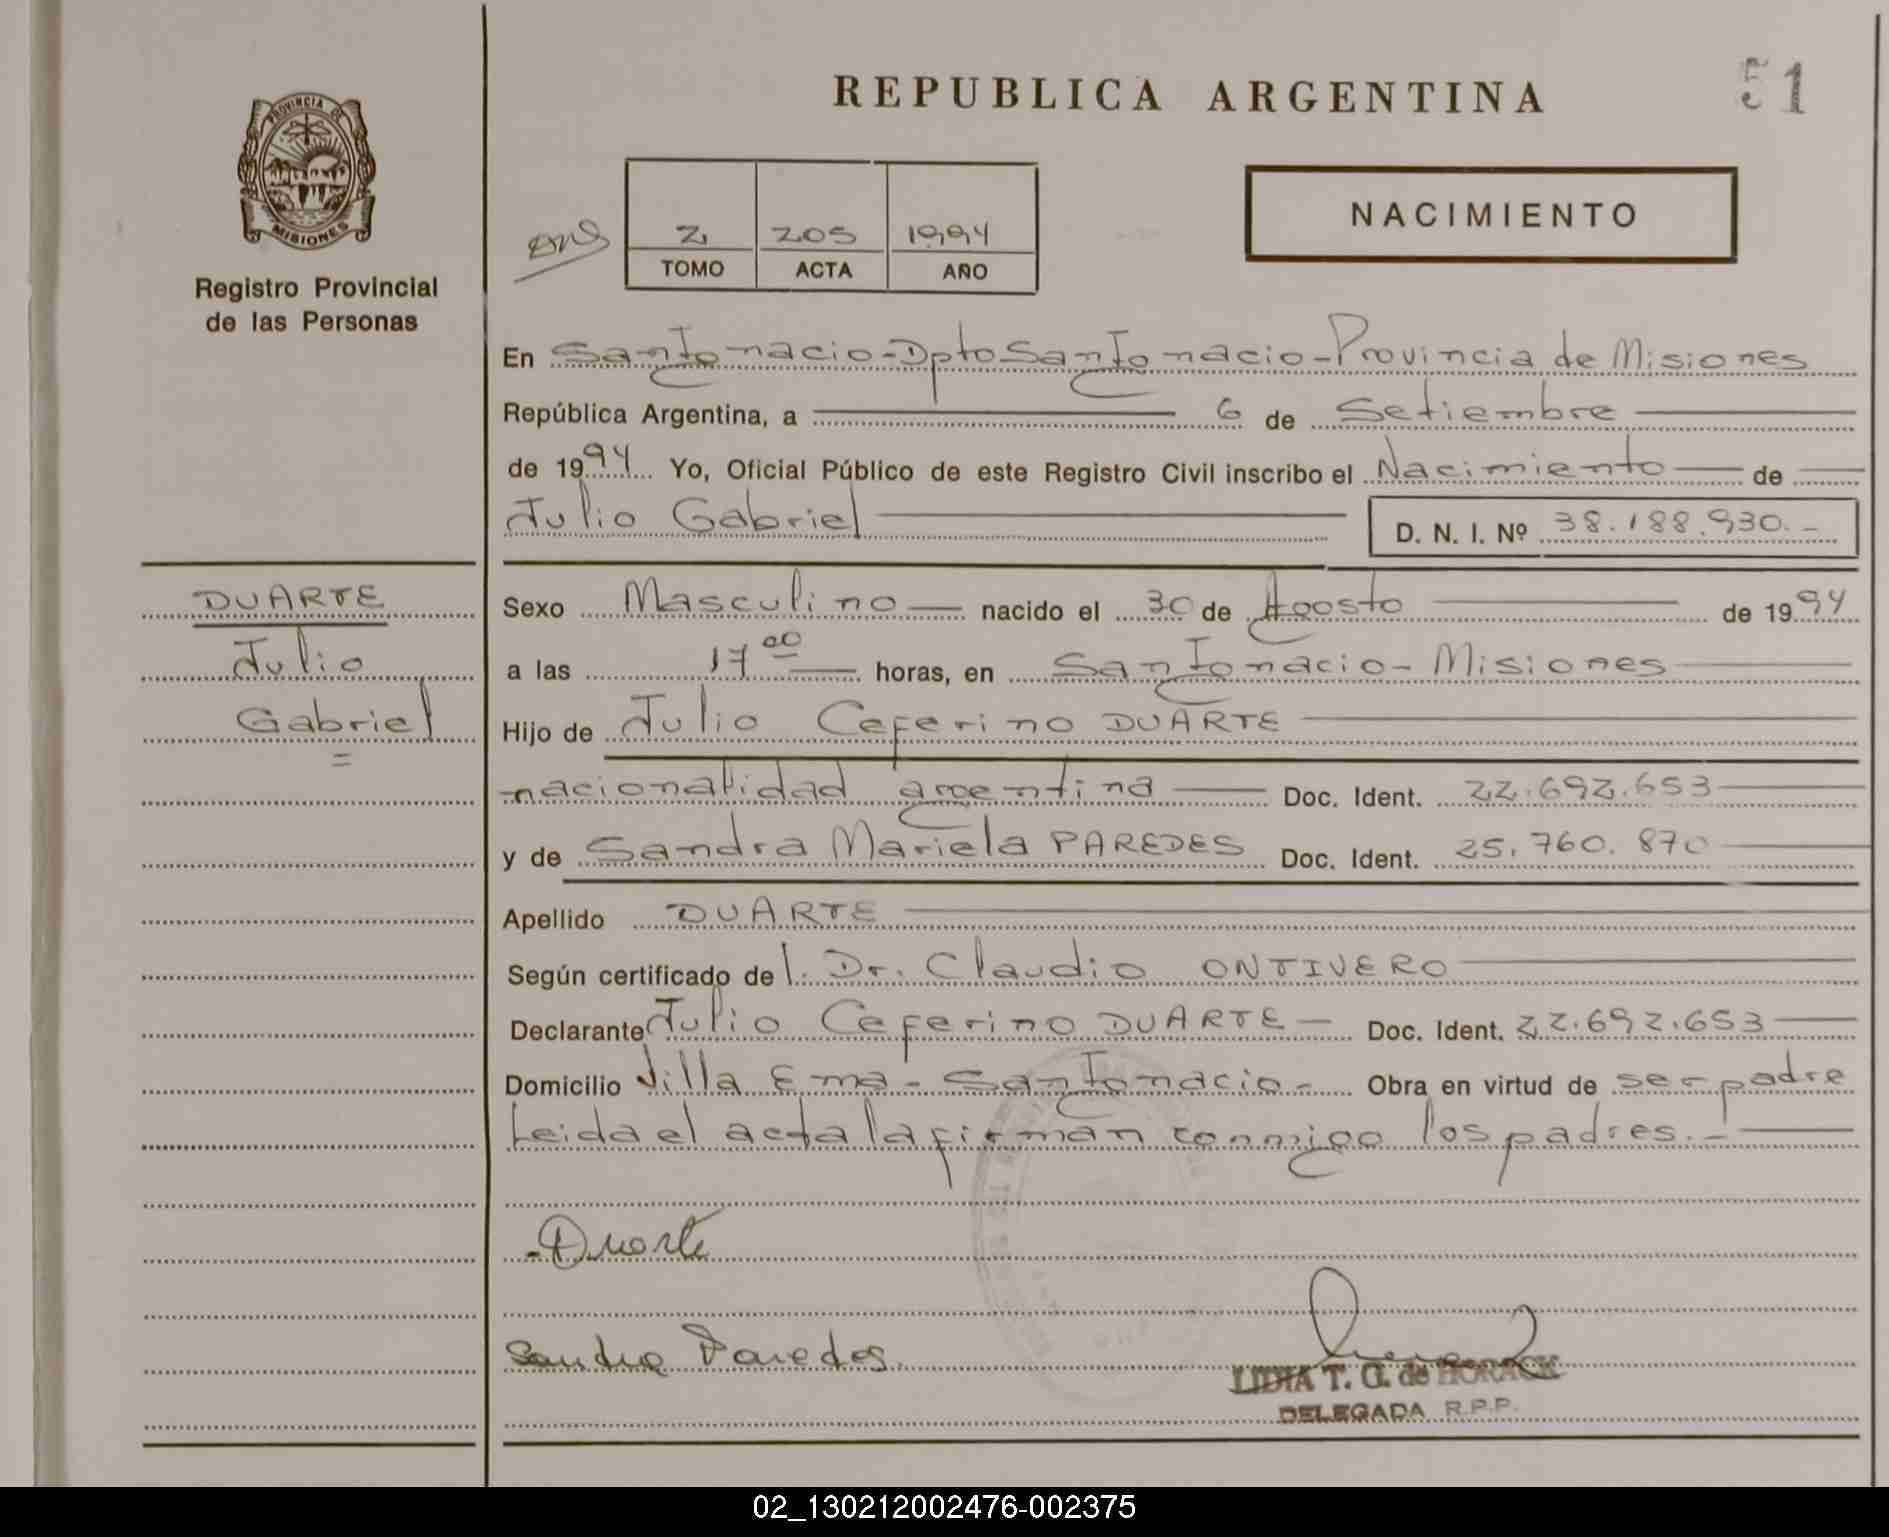 REPUBLICA ARGENTINA
51
PROVINCIA DE
MISIONES
Registro Provincial
de las Personas
2 205 1994
TOMO ACTA AÑO
NACIMIENTO
En San Ignacio - Dpto San Ignacio - Provincia de Misiones
República Argentina, a 6 de Setiembre
de 1994 Yo, Oficial Público de este Registro Civil inscribo el Nacimiento de
Julio Gabriel D. N. I. Nº 38.188.930.-
DUARTE
Julio
Gabriel
=
Sexo Masculino nacido el 30 de Agosto de 1994
a las 17 00 horas, en San Ignacio - Misiones
Hijo de Julio Ceferino DUARTE
nacionalidad argentina Doc. Ident. 22.692.653
y de Sandra Mariela PAREDES Doc. Ident. 25.760.870
Apellido DUARTE
Según certificado del Dr. Claudio ONTIVERO
Declarante Julio Ceferino DUARTE - Doc. Ident. 22.692.653
Domicilio Villa Ema - San Ignacio - Obra en virtud de ser padre
Leida el acta la firman conmigo los padres.-
Duarte
Sandra Paredes.
LIDIA T. G. de HORACK
DELEGADA R.P.P.
02_130212002476-002375